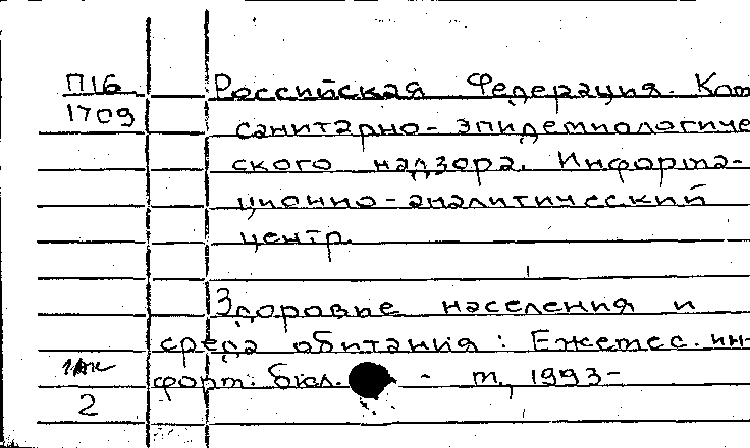 П16
1709
Российская Федерация. Ком
санитарно-эпидемиологиче
ского надзора. Информа-
ционно-аналитический
центр.
Здоровье населения и
среда обитания: Ежемес. ин-
форм. бюл. - м., 1993-
2